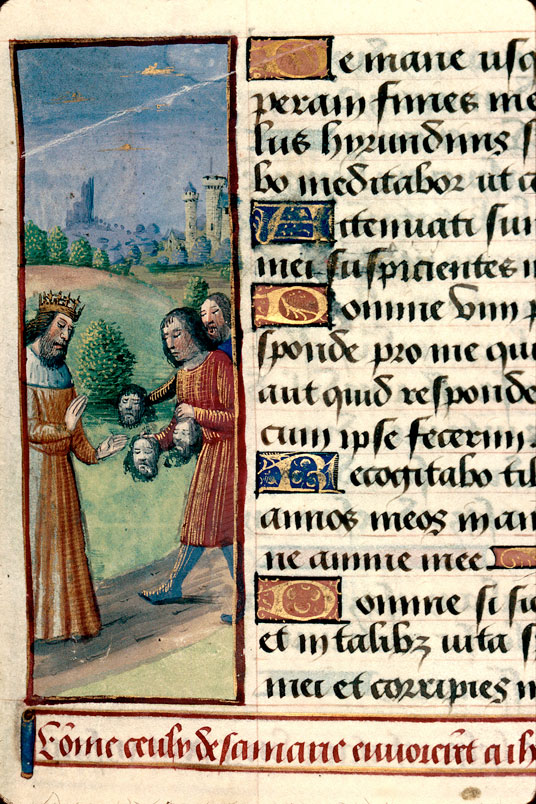 De mane usq
peram finies me
lus hyrundinis s
bo meditabor ut c
Attenuati sun
mei suspicientes in
Domine vim p
sponde pro me qui
aut quid responde
cum ipse fecerim
Recogitabo tib
annos meos in am
ne anime mee
Domine si sic
et in talibz vita s
mei et corripies m
Cōme ceulx de samarie envoierēt a ih